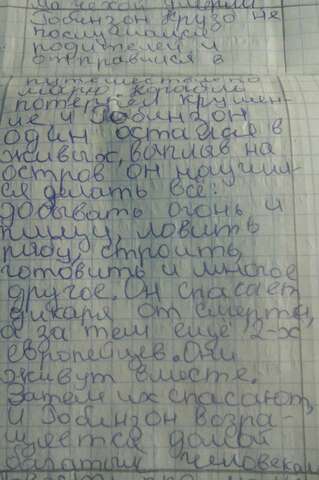 Робинзон Крузо не
послушался
родителей и
отправился в
путешествие по
морю корабль
потерпел крушен-
ие и Робинзон
один остался в
живых, выплив на
остров он научил-
ся делать всё:
добывать огонь и
пищу, ловить
рыбу, строить,
готовить и многое
другое. Он спасает
дикаря от смерти,
а за тем ещё 2-х
европейцев. Они
живут вместе.
Затем их спасают,
и Робинзон возра-
щяется домой
богатым человеком